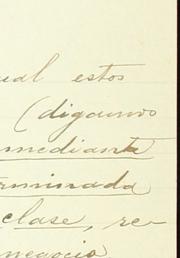 ual estos
(digamos
mediante
rminada
clase, re-
negocio